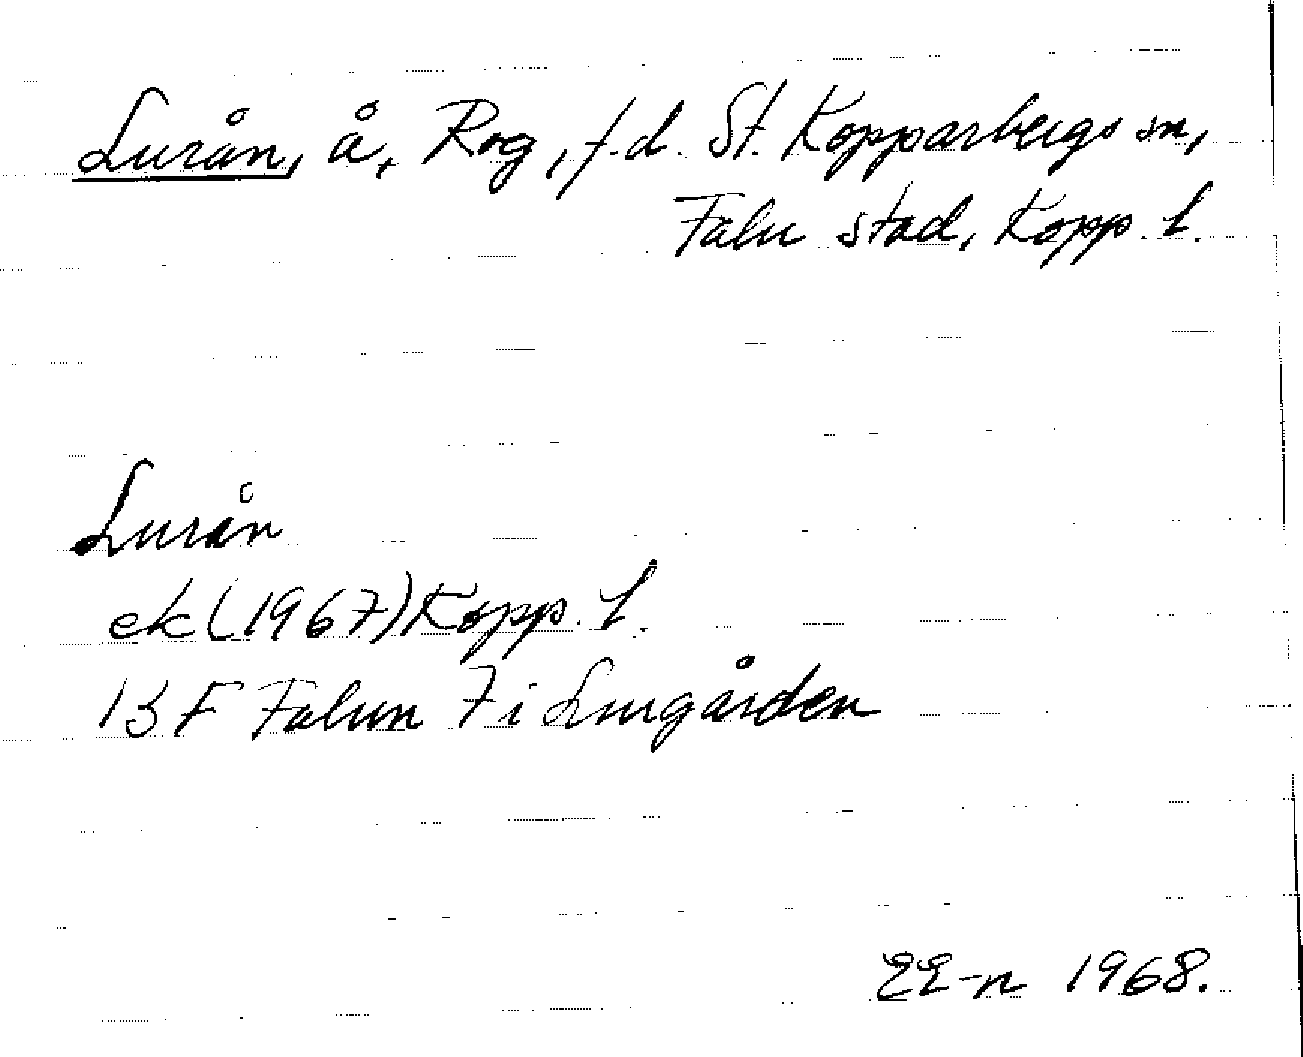 Lurån, å, Rog, f.d. St. Kopparbergs sn,
Falu stad, Kopp. l.
Lurån
ek (1967) Kopp. l.
13 F Falun 7 i Lurgården
EE-n 1968.